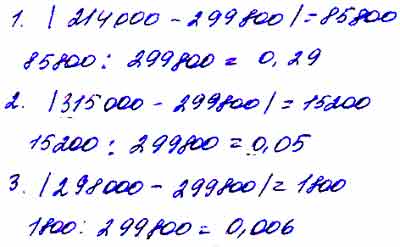 1. | 214000 - 299800 | = 85800
85800 : 299800 = 0,29
2. |315000 - 299800| = 15200
15200 : 299800 = 0,05
3. |298000 - 299800| = 1800
1800 : 299800 = 0,006